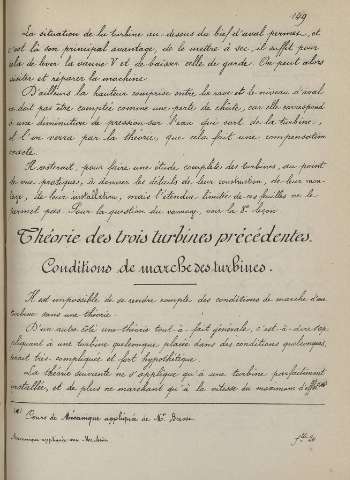 149
La situation de la turbine au-dessus du bief d'aval permet, et
c'est là son principal avantage, de le mettre à sec, il suffit pour
cela de lever la vanne V et de baisser celle de garde. On peut alors
visiter et réparer la machine.
D'ailleurs la hauteur comprise entre la roue et le niveau d'aval
ne doit pas être comptée comme une perte de chute, car elle correspond
à une diminution de pression sur l'eau qui sort de la turbine,
et l'on verra par la théorie, que cela fait une compensation
exacte.
Il resterait, pour faire une étude complète des turbines, au point
de vue pratique, à donner les détails de leur construction, de leur mon-
tage, de leur installation, mais l'étendue limitée de ces feuilles ne le
permet pas. Pour la question du vannage, voir la 8e leçon
Théorie des trois turbines précédentes.
Conditions de marche des turbines.
Il est impossible de se rendre compte des conditions de marche d'une
turbine sans une théorie.
D'un autre côté une théorie tout-à-fait générale, c'est-à-dire s'ap-
pliquant à une turbine quelconque, placée dans des conditions quelconques,
serait très compliquée et fort hypothétique.
La théorie suivante ne s'applique qu'à une turbine parfaitement
installée, et de plus ne marchant qu'à la vitesse du maximum d'effet (a)
(a) Cours de Mécanique appliquée de Mr. Bresse
Mécanique appliquée aux Machines
flle 20